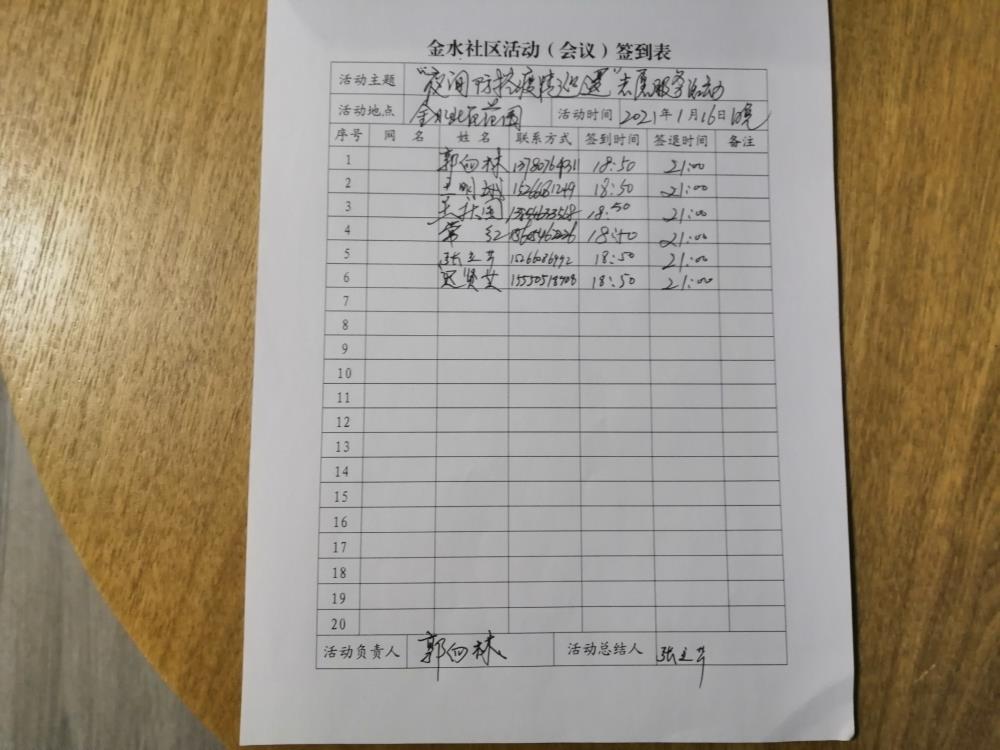 金水社区活动（会议）签到表
活动主题 “夜间防控疫情巡逻”志愿服务活动
活动地点 金水社区范围 活动时间 2021年1月16日晚
序号 网 名 姓 名 联系方式 签到时间 签退时间 备注
1 郭向林 13780764311 18:50 21:00
2 15266681249 18:50 21:00
3 18:50 21:00
4 常 红 18:50 21:00
5 张立芹 15266086992 18:50 21:00
6 贤芝 15550518908 18:50 21:00
7
8
9
10
11
12
13
14
15
16
17
18
19
20
活动负责人 郭向林 活动总结人 张立芹